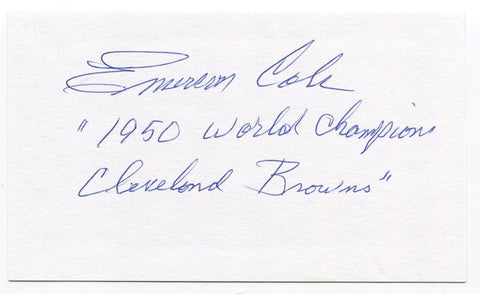 Emerson Cole
"1950 World Champions
Cleveland Browns"